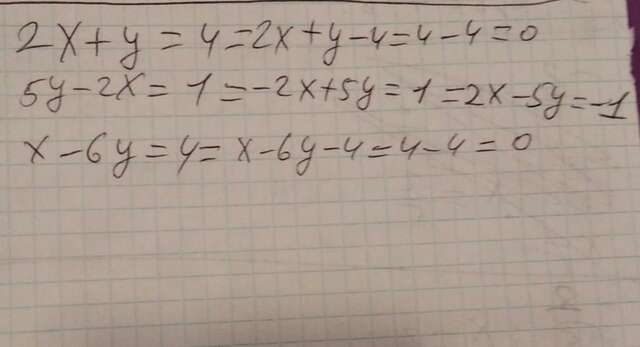 2x+y=4=2x+y-4=4-4=0
5y-2x=1=-2x+5y=1=2x-5y=-1
x-6y=4=x-6y-4=4-4=0